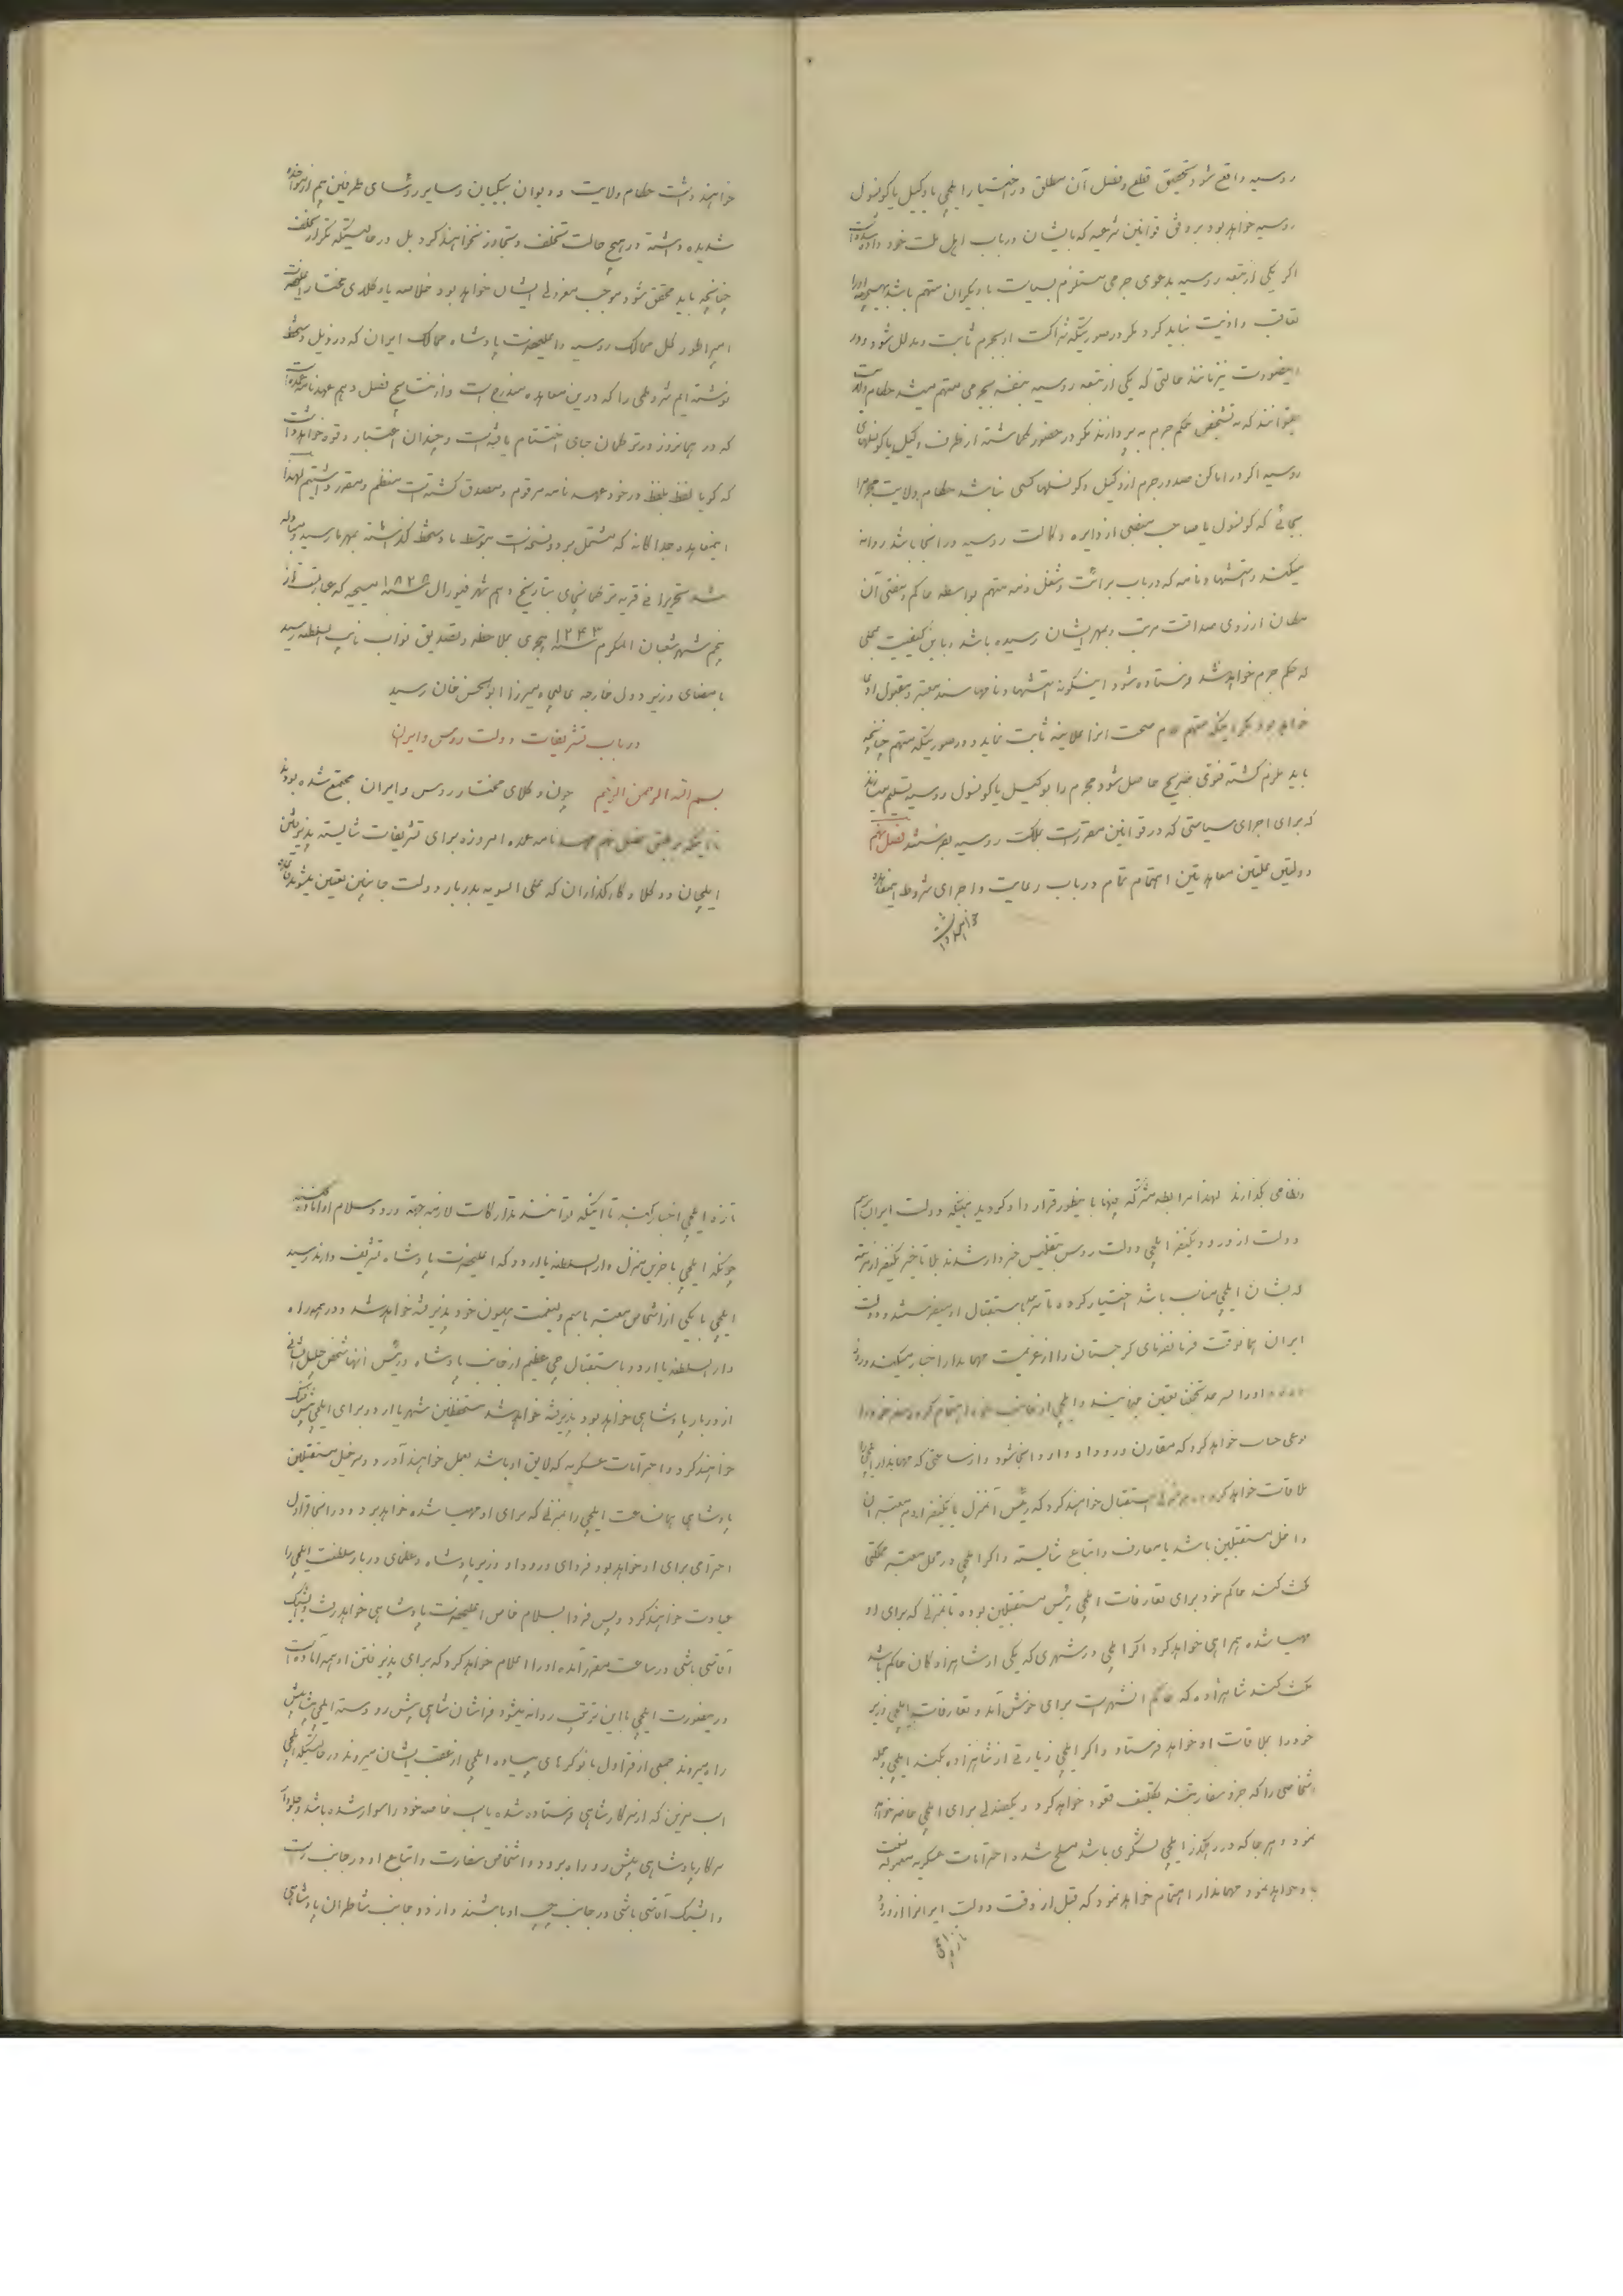 روسیه واقع شود تحقیق و قطع و فصل آن مطلق در اختیار ایلچی یا وکیل یا کونسول
روسیه خواهد بود بر وفق قوانین شرعیه که بایشان در باب اهل ملت خود داده شده است
اگر یکی از تبعه روسیه بدعوی جرمی مستلزم بسیاست با دیگران متهم باشد بهیچوجه او را
تعاقب و اذیت نباید کرد مگر در صورتیکه شراکت او بجرم ثابت و مدلل شود و در
اینصورت نیز مانند حالتی که یکی از تبعه روسیه بنفسه بجرمی متهم میشد حکام ولایت
نمیتوانند که به تشخیص و حکم جرم بپردازند مگر در حضور گماشته از طرف وکیل یا کونسلهای
روسیه اگر در اماکن صدور جرم از وکیل و کونسلها کسی نباشد حکام ولایت مجرم را
بجائی که کونسول یا صاحب منصبی از دایره وکالت روسیه در انجا باشد روانه
میکنند و استشهاد نامه که در باب برائت و شغل ذمه متهم بواسطه حاکم و مفتی آن
مکان از روی صداقت مرتب و بمهر ایشان رسیده باشد و باین کیفیت بمحلی
که حکم جرم خواهد شد فرستاده شود اینگونه استشهاد نامها سند معتبر و مقبول
خواهد بود مگر اینکه متهم عدم صحت انرا علانیه ثابت نماید در صورتیکه متهم چنانچه
باید ملزم گشته فتوی صریح حاصل شود مجرم را بوکیل یا کونسول روسیه تسلیم میسازند
که برای اجرای سیاستی که در قوانین مقررست بمملکت روسیه بفرستند فصل نهم
دولتین علیتین معاهدتین اهتمام تمام در باب رعایت و اجرای شروط اینمعاهده
خواهند داشت
خواهند داشت حکام ولایت و دیوان بیگیان و سایر رؤسای طرفین هم از مؤاخذه
شدیده داشته در هیچ حالت تخلف و تجاوز نخواهند کرد بل در حالتیکه تکرار تخلف
چنانچه باید محقق شود موجب معزولی ایشان خواهد بود خلاصه ما وکلای مختار اعلیحضرت
امپراطور کل ممالک روسیه و اعلیحضرت پادشاه ممالک ایران که در ذیل دستخط
نوشته‌ایم شروطی را که درین معاهده مندرج است و از نتایج فصل دهم عهدنامه عمده است
که در همانروز در ترکمان چای اختتام یافته است و چندان اعتبار و قوه خواهد داشت
که گویا لفظ بلفظ در خود عهدنامه مرقوم و مصدق گشته است منظم و مقرر داشتیم لهذا
اینمعاهده جداگانه که مشتمل بر دو نسخه است بتوسط ما دستخط گذاشته بمهر ما رسید و مبادله
شد تحریرا فی قریه ترکمانچای بتاریخ دهم شهر فیورال سنه ۱۸۲۸ مسیحیه که عبارتست از
پنجم شهر شعبان المکرم سنه ۱۲۴۳ هجری بملاحظه و تصدیق نواب نایب السلطنه رسید
بامضای وزیر دول خارجه عالیجاه میرزا ابوالحسن خان رسید
در باب تشریفات دولت روس و ایران
بسم الله الرحمن الرحیم چون وکلای مختار روس و ایران مجتمع شده بودند
تا اینکه بر طبق فصل نهم عهدنامه عمده امروزه برای تشریفات شایسته پذیرفتن
ایلچیان و وکلا و کارگذاران که علی السویه بدربار دولت جانبین تعیین میشوند
ونظامی گذارند لهذا مرابطه مشترکه فیهما باینطور قرار داد گردید همینکه دولت ایران
دولت از ورود یکنفر ایلچی دولت روس بتفلیس خبردار شدند بلا تاخیر یکنفر از مرتبه
که بشان ایلچی مناسب باشد اختیار کرده تا سرحد باستقبال او میفرستند و دولت
ایران همانوقت فرمانفرمای گرجستان را از عزیمت مهماندار اخبار میکنند
او را سرحد تعیین مینمایند و ایلچی از اهتمام کرده سفر خود را
نوعی حساب خواهد کرد که مقارن ورود او وارد انجا شود و از ساعتی که مهماندار ایلچی را
ملاقات خواهد کرد استقبال خواهند کرد که رئیس آنمنزل با یکنفر ادم معتبر ان
داخل مستقبلین باشد با معارف و اتباع شایسته و اگر ایلچی در محل معتبر مملکتی
مکث کند حاکم خود برای تعارفات ایلچی رئیس مستقبلین بوده تا بمنزلی که برای او
مهیا شده همراهی خواهد کرد و اگر ایلچی در شهری که یکی از شاهزادگان حاکم باشد
مکث کند شاهزاده که حاکم انشهرست برای خوش آمد و تعارفات ایلچی وزیر
خود را بملاقات او خواهد فرستاد و اگر ایلچی زیارتی از شاهزاده بکند ایلچی و جمله
اشخاصی را که جزو سفارتند تکلیف قعود خواهد کرد و یکصندلی برای ایلچی حاضر خواهد
نمود و هر جا که در رهگذر ایلچی لشگری باشد مسلح شده احترامات عسکریه
خواهد نمود مهماندار اهتمام خواهد نمود که قبل از وقت دولت ایرانرا از ورود
تازه ایلچی
تازه ایلچی اخبار کنند تا اینکه توانند تدارکات لازمه بجهة ورود و سلام او آماده کنند
چونکه ایلچی باخرین منزل دارالسلطنه یا اردو که اعلیحضرت پادشاه تشریف دارند رسید
ایلچی با یکی از اشخاص معتبر باسم ولینعمت همیون خود پذیرفته خواهد شد و در
دارالسلطنه یا اردو باستقبال جمعی عظیم از جانب پادشاه و رئیس انها شخص جلیل الشانی
از دربار پادشاهی خواهد بود پذیرفته خواهد شد مستحفظین شهر یا اردو برای ایلچی پیش فنگ
خواهند کرد و احترامات عسکریه که لایق او باشد بعمل خواهند آورد و سرخیل مستقبلین
پادشاهی همانساعت ایلچی را بمنزلی که برای او مهیا شده خواهد برد و در انجا قراول
احترامی برای او خواهد بود فردای ورود او وزیر پادشاه و عظمای دربار سلطنت ایلچی را
عیادت خواهند کرد و پس فردا بسلام خاص اعلیحضرت پادشاهی خواهد رفت و ایشیک
آقاسی باشی در ساعت مقرر آمده او را اعلام خواهد کرد که برای پذیرفتن او همه آماده است
در اینصورت ایلچی با این ترتیب روانه میشود فراشان شاهی پیش رو دسته ایلچی پیشاپیش
راه میروند جمعی از قراول با نوکرهای پیاده ایلچی از عقب ایشان میروند در حالتیکه ایلچی
اسب مزین که از سرکار شاهی فرستاده شده یا اسب خاصه خود را سوار شده باشد
سرکار پادشاهی پیش رو راه برود و اشخاص سفارت و اتباع او در جانب راست
و ایشیک آقاسی باشی در جانب چپ او باشند و از دو جانب شاطران پادشاهی